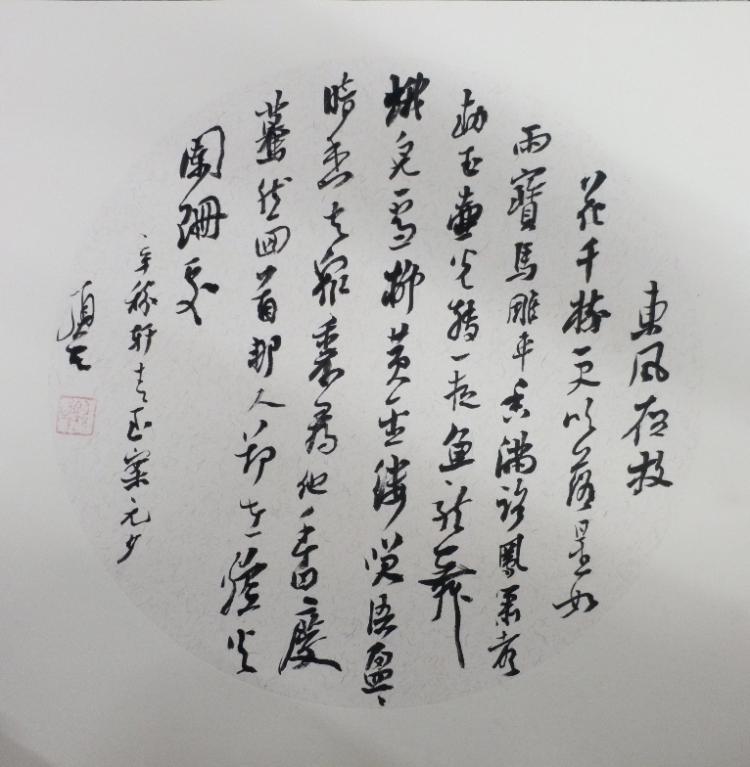 東風夜放
花千樹更吹落星如
雨寶馬雕車香滿路鳳簫聲
動玉壺光轉一夜魚龍舞
蛾兒雪柳黃金縷笑語盈〻
暗香去眾裏尋他千百度
驀然回首那人却在燈火
闌珊處
辛稼軒青玉案元夕